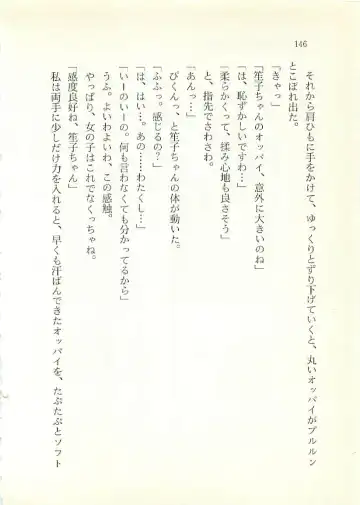 146
それから肩ひもに手をかけて、ゆっくりとずり下げていくと、丸いオッパイがプルルン
とこぼれ出た。
「きゃっ」
「笙子ちゃんのオッパイ、意外に大きいのね」
「は、恥ずかしいですわ…」
「柔らかくって、揉み心地も良さそう」
と、指先でさわさわ。
「あんっ…」
ぴくんっ、と笙子ちゃんの体が動いた。
「ふふっ。感じるの？」
「は、はい…。あの……わたくし…」
「いーのいーの。何も言わなくても分かってるから」
うふ。よいわよいわ、この感触。
やっぱり、女の子はこれでなくっちゃね。
「感度良好ね、笙子ちゃん」
私は両手に少しだけ力を入れると、早くも汗ばんできたオッパイを、たぷたぷとソフト